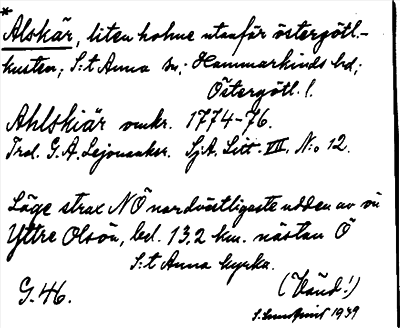 *
Alskär, liten holme utanför östergötl.-
kusten; S:t Anna sn; Hammarkinds hd;
Östergötl. l.
Ahlskiär omkr. 1774-76.
G. A. Lejonanker. SjA. Litt. VII. N:o 12.
Läge strax NÖ nordvästligaste udden av ön
Yttre Olsön, bel. 13,2 km. nästan Ö
S:t Anna kyrka.
G. 46. (Vänd!)
1939